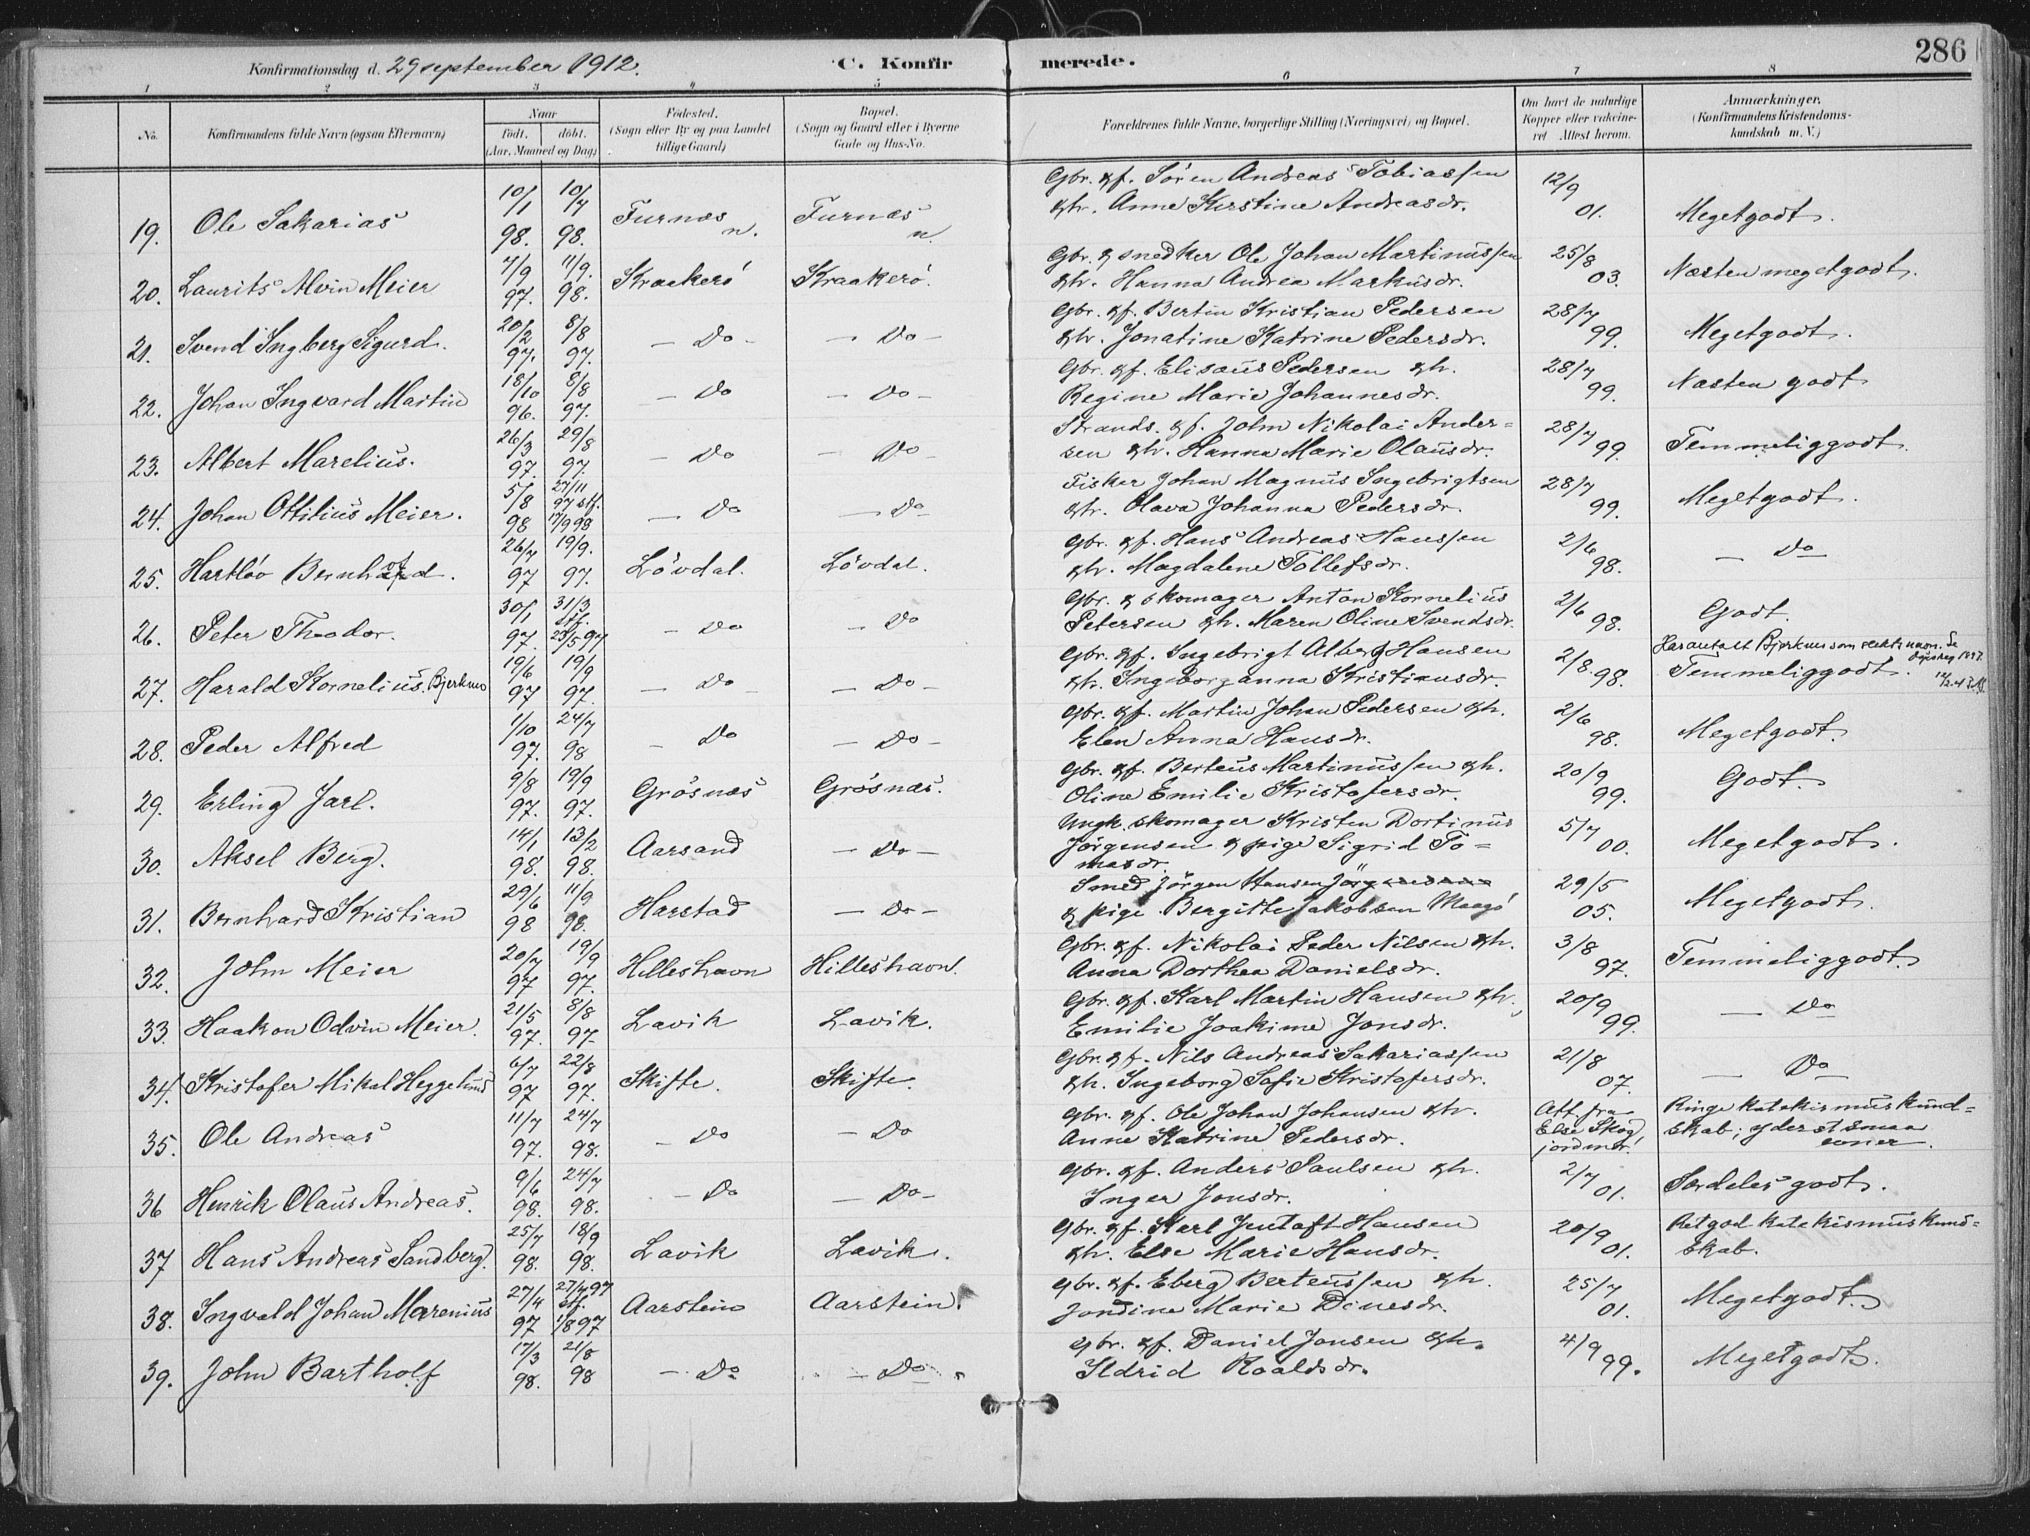 286
Konfirmationsdag d. 29 september 1912. C. Konfirmerede.
1 2 3 4 5 6 7 8
No. Konfirmandens fulde Navn (ogsaa Efternavn) Naar født. døbt. (Aar, Maaned og Dag) Fødested. (Sogn eller By og paa Landet tillige Gaard) Bopæl. (Sogn og Gaard eller i Byerne Gade og Hus-No. Forældrenes fulde Navne, borgerlige Stilling (Næringsvei) og Bopæl. Om havt de naturlige Kopper eller vakcineret Attest herom. Anmærkninger. (Konfirmandens Kristendomskundskab m. V.)
19. Ole Sakarias 10/1 98. 10/7 98. Furnæs n. Furnæs n. Gbr. & f. Sören Andreas Tobiassen 12/9 01. Megetgodt.
& h. Anne Kirstine Andreasdr.
20. Laurits Alvin Meier 7/9 97. 11/9. 98. Kraakerö Kraakerö. Gbr. & snedker Ole Johan Martinussen 25/8 03. Næsten megetgodt.
& h. Hanna Andrea Markusdr.
21. Svend Ingberg Sigurd. 20/2 97. 8/8 97. — Do — — Do — Gbr. & f. Bertin Kristian Pedersen 28/7 99. Megetgodt.
& h. Jonatine Katrine Pedersdr.
22. Johan Ingvard Martin 18/10 96. 8/8 97. — Do — Do — Gbr. & f. Elisæus Pedersen & h. 28/7 99. Næsten godt
Regine Marie Johannesdr.
23. Albert Marelius. 26/3 97. 29/8 97. — Do — Do — Strands. & f. John Nikolai Ander= 28/7 99. Temmeliggodt.
sen & h. Hanna Marie Olausdr.
24. Johan Ottilius Meier. 5/8 98 27/11 97 stf. 17/9 98 — Do — Do — Fisker Johan Magnus Ingebrigtsen 28/7 99. Megetgodt.
& h. Olava Johanna Pedersdr.
25. Hartløv Bernhard. 26/7 97 19/9. 97. Lövdal. Lövdal. Gbr. & f. Hans Andreas Hanssen 2/6 98. — Do —
& h. Magdalene Tollefsdr.
26. Peter Theodor. 30/1 97. 31/3 stf. 23/5 97 — Do — Do Gbr. & skomager Anton Kornelius 2/6 98. Godt.
Petersen & h. Maren Oline Svendsdr.
27. Harald Kornelius. Bjerknes 19/6 97 19/9 97. — Do — — Do — Gbr. & f. Ingebrigt Albert Hansen 2/8. 98. Har antatt Bjerknes som slektsnavn. Se
Temmeliggodt.
& h. Ingeborganna Kristiansdr.
28. Peder Alfred 1/10 97. 24/7 98 — Do — Do — Gbr. & f. Martin Johan Pedersen & h. 2/6 98. Megetgodt.
Elen Anna Hansdr.
29. Erling Jarl. 9/8 97. 19/9 97. Grösnæs Grösnæs. Gbr. & f. Berteus Martinussen & h. 20/9 99. Godt.
Oline Emilie Kristofersdr.
30. Aksel Berg. 14/1 98. 13/2 98. Aarsand — Do — Ungk. skomager Kristen Dortinus 5/7 00. Megetgodt.
Jörgensen & pige Sigrid To=
masdr.
31. Bernhard Kristian 29/6 98 11/9 98. Harstad — Do — Smed Jörgen Hansen Jörgensen 29/5 05. Megetgodt.
& pige Bergitte Jakobsen Maagö
32. John Meier 20/7 97 19/9 97. Hilleshavn Hilleshavn. Gbr. & f. Nikolai Peder Nilsen & h. 3/8 97. Temmeliggodt.
Anna Dorthea Danielsdr.
33. Haakon Odvin Meier. 21/5 97. 8/8 97 Lavik Lavik. Gbr. & f. Karl Martin Hansen & h. 20/9 99. — Do
Emilie Joakime Jonsdr.
34. Kristofer Mikal Heggelund 6/7 97 22/8 97. Skifte. Skifte. Gbr. & f. Nils Andreas Sakariassen 21/8 07. — Do
& h. Ingeborg Sofie Kristofersdr.
35. Ole Andreas 11/7 97. 24/7 98. — Do — Do Gbr. & f. Ole Johan Johansen & h. Att. fra Else Skog, jordmor. Ringe katekismuskund=
Anne Katrine Pedersdr. skab; yderst smaa
evner.
36 Henrik Olaus Andreas. 9/6 98. 24/7 98. — Do — Do — Gbr. & f. Anders Paulsen & h. 2/7 01. Særdeles godt.
Inger Jonsdr.
37 Hans Andreas Sandberg. 25/7 98. 18/9 98. Lavik Lavik. Gbr. & f. Karl Jentoft Hansen 20/9 01. Ret god katekismuskund=
& h. Else Marie Hansdr. skab.
38. Ingvald Johan Marenius 27/4 97 27/4 97 stf. 1/8 97 Aarstein Aarstein. Gbr. & f. Eberg Berteussen & h. 25/7 01. Megetgodt.
Jondine Marie Dinesdr.
39. John Bartholf 17/3 98. 21/8 98 — Do — Do Gbr. & f. Daniel Jonsen & h. 4/9 99. Megetgodt.
Ildrid Roaldsdr.